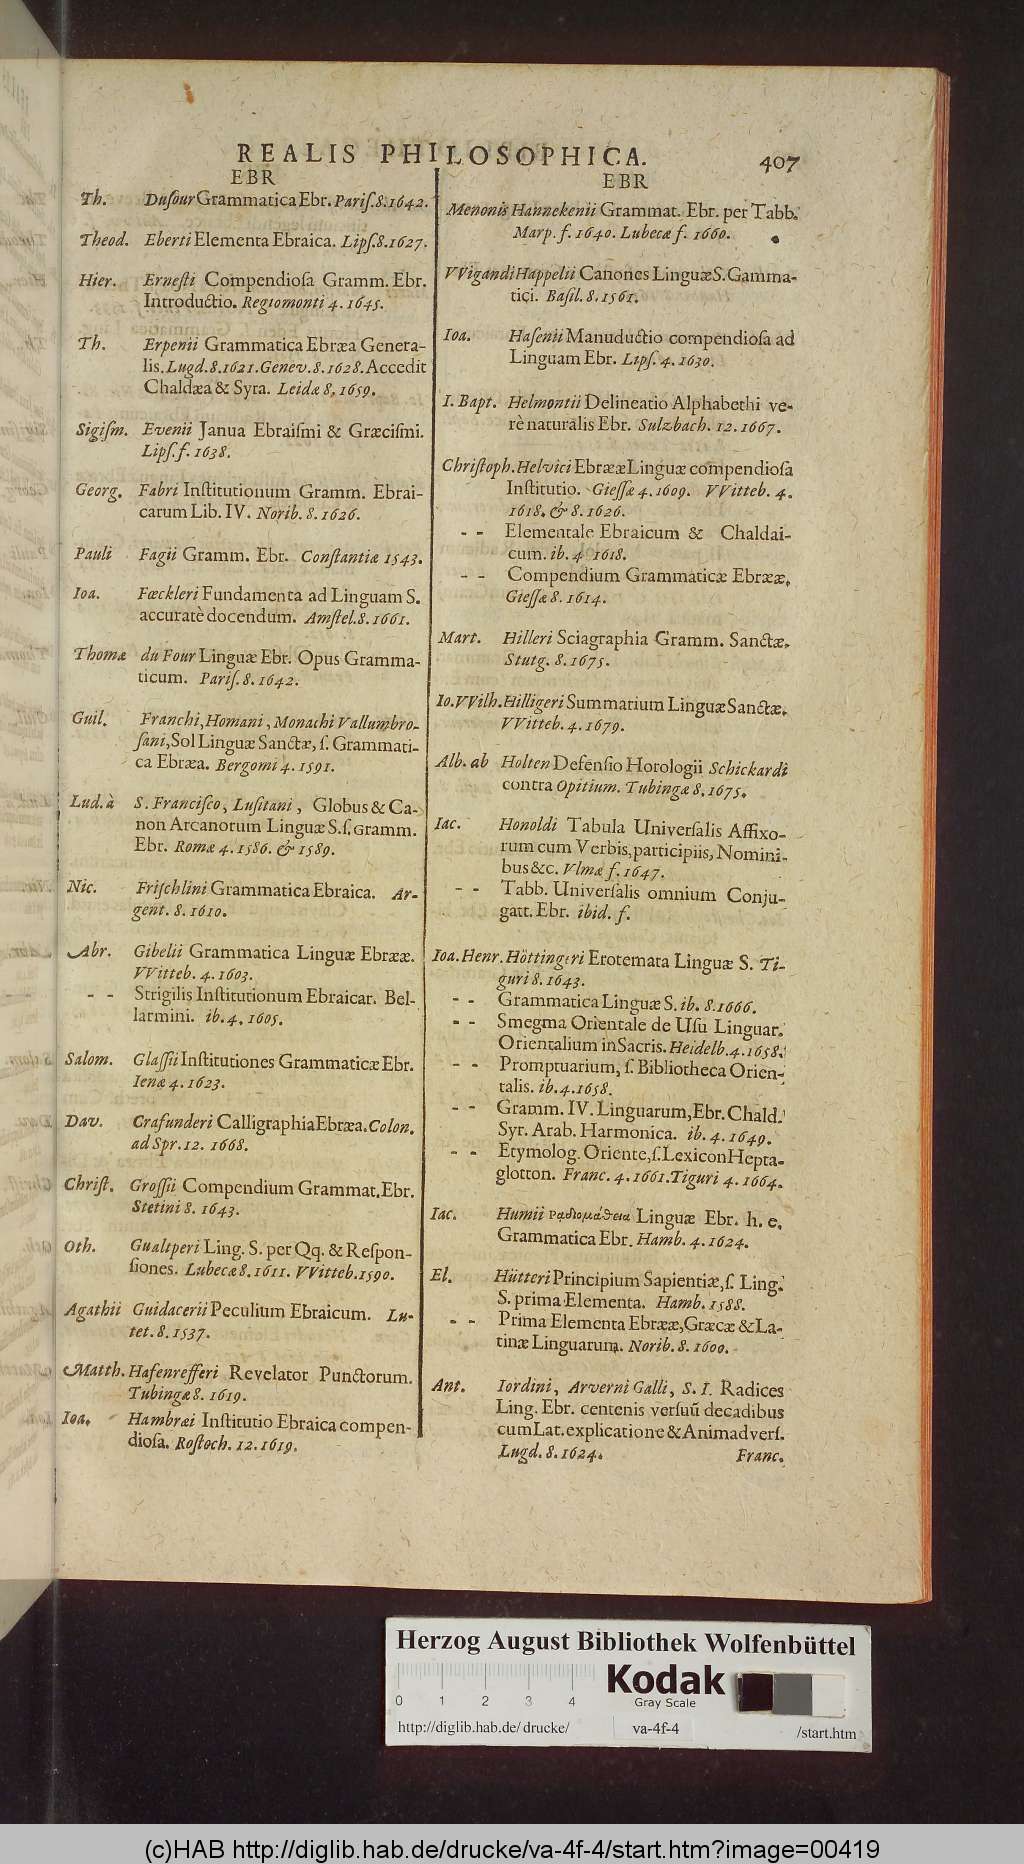 REALIS PHILOSOPHICA. 407
EBR
Th. Dufour Grammatica Ebr. Pariſ. 8. 1642.
Theod. Eberti Elementa Ebraica. Lipſ. 8. 1627.
Hier. Erneſti Compendioſa Gramm. Ebr.
Introductio. Regiomonti 4. 1645.
Th. Erpenii Grammatica Ebræa Genera-
lis. Lugd. 8. 1621. Genev. 8. 1628. Accedit
Chaldæa & Syra. Leidæ 8. 1659.
Sigiſm. Evenii Janua Ebraiſmi & Græciſmi.
Lipſ. f. 1638.
Georg. Fabri Inſtitutionum Gramm. Ebrai-
carum Lib. IV. Norib. 8. 1626.
Pauli Fagii Gramm. Ebr. Conſtantiæ 1543.
Ioa. Fœckleri Fundamenta ad Linguam S.
accuratè docendum. Amſtel. 8. 1661.
Thomæ du Four Linguæ Ebr. Opus Gramma-
ticum. Pariſ. 8. 1642.
Guil. Franchi, Homani, Monachi Vallumbro-
ſani, Sol Linguæ Sanctæ, ſ. Grammati-
ca Ebræa. Bergomi 4. 1591.
Lud. à S. Franciſco, Luſitani, Globus & Ca-
non Arcanorum Linguæ S. ſ. Gramm.
Ebr. Romæ 4. 1586. & 1589.
Nic. Friſchlini Grammatica Ebraica. Ar-
gent. 8. 1610.
Abr. Gibelii Grammatica Linguæ Ebrææ.
VVitteb. 4. 1603.
- - Strigilis Inſtitutionum Ebraicar. Bel-
larmini. ib. 4. 1605.
Salom. Glaſſii Inſtitutiones Grammaticæ Ebr.
Ienæ 4. 1623.
Dav. Crafunderi Calligraphia Ebræa. Colon.
ad Spr. 12. 1668.
Chriſt. Groſſii Compendium Grammat. Ebr.
Stetini 8. 1643.
Oth. Gualtperi Ling. S. per Qq. & Reſpon-
ſiones. Lubecæ 8. 1611. VVitteb. 1590.
Agathii Guidacerii Peculium Ebraicum. Lu-
tet. 8. 1537.
Matth. Hafenrefferi Revelator Punctorum.
Tubingæ 8. 1619.
Ioa. Hambræi Inſtitutio Ebraica compen-
dioſa. Roſtoch. 12. 1619.
EBR
Menonis Hannekenii Grammat. Ebr. per Tabb.
Marp. f. 1640. Lubecæ f. 1660.
VVigandi Happelii Canones Linguæ S. Gamma-
tici. Baſil. 8. 1561.
Ioa. Haſenii Manuductio compendioſa ad
Linguam Ebr. Lipſ. 4. 1630.
I. Bapt. Helmontii Delineatio Alphabethi ve-
rè naturalis Ebr. Sulzbach. 12. 1667.
Chriſtoph. Helvici Ebrææ Linguæ compendioſa
Inſtitutio. Gieſſæ 4. 1609. VVitteb. 4.
1618. & 8. 1626.
- - Elementale Ebraicum & Chaldai-
cum. ib. 4 1618.
- - Compendium Grammaticæ Ebrææ.
Gieſſæ 8. 1614.
Mart. Hilleri Sciagraphia Gramm. Sanctæ.
Stutg. 8. 1675.
Io. VVilh. Hilligeri Summarium Linguæ Sanctæ.
VVitteb. 4. 1679.
Alb. ab Holten Defenſio Horologii Schickardi
contra Opitium. Tubingæ 8. 1675.
Iac. Honoldi Tabula Univerſalis Affixo-
rum cum Verbis, participiis, Nomini-
bus &c. Vlmæ f. 1647.
- - Tabb. Univerſalis omnium Conju-
gatt. Ebr. ibid. f.
Ioa. Henr. Höttingeri Erotemata Linguæ S. Ti-
guri 8. 1643.
- - Grammatica Linguæ S. ib. 8. 1666.
- - Smegma Orientale de Uſu Linguar.
Orientalium in Sacris. Heidelb. 4. 1658.
- - Promptuarium, ſ. Bibliotheca Orien-
talis. ib. 4. 1658.
- - Gramm. IV. Linguarum, Ebr. Chald.
Syr. Arab. Harmonica. ib. 4. 1649.
- - Etymolog. Oriente, ſ. Lexicon Hepta-
glotton. Franc. 4. 1661. Tiguri 4. 1664.
Iac. Humii Ραδιομάθεια Linguæ Ebr. h. e.
Grammatica Ebr. Hamb. 4. 1624.
El. Hütteri Principium Sapientiæ, ſ. Ling.
S. prima Elementa. Hamb. 1588.
- - Prima Elementa Ebrææ, Græcæ & La-
tinæ Linguarum. Norib. 8. 1600.
Ant. Iordini, Arverni Galli, S. I. Radices
Ling. Ebr. centenis verſuũ decadibus
cum Lat. explicatione & Animadverſ.
Lugd. 8. 1624. Franc.
Herzog August Bibliothek Wolfenbüttel
0 1 2 3 4 Kodak
Gray Scale
http://diglib.hab.de/drucke/ va-4f-4 /start.htm
(c)HAB http://diglib.hab.de/drucke/va-4f-4/start.htm?image=00419